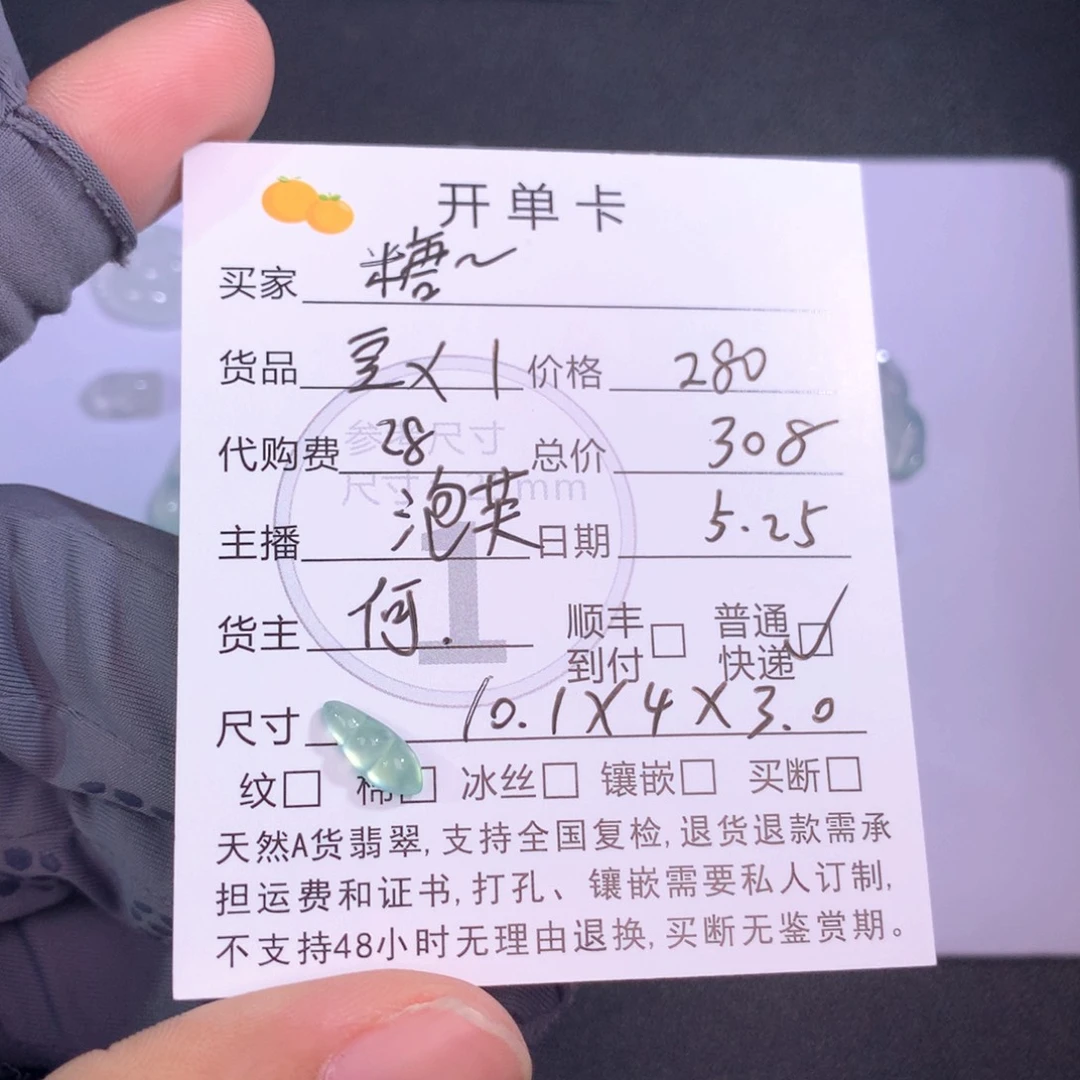 开单卡
买家 糖~
货品 豆X1 价格 280
代购费 28 总价 308
主播 泡英 日期 5.25
货主 何. 顺丰到付□ 普通快递☑
尺寸 10.1X4X3.0
纹□ 棉□ 冰丝□ 镶嵌□ 买断□
天然A货翡翠,支持全国复检,退货退款需承
担运费和证书,打孔、镶嵌需要私人订制,
不支持48小时无理由退换,买断无鉴赏期。